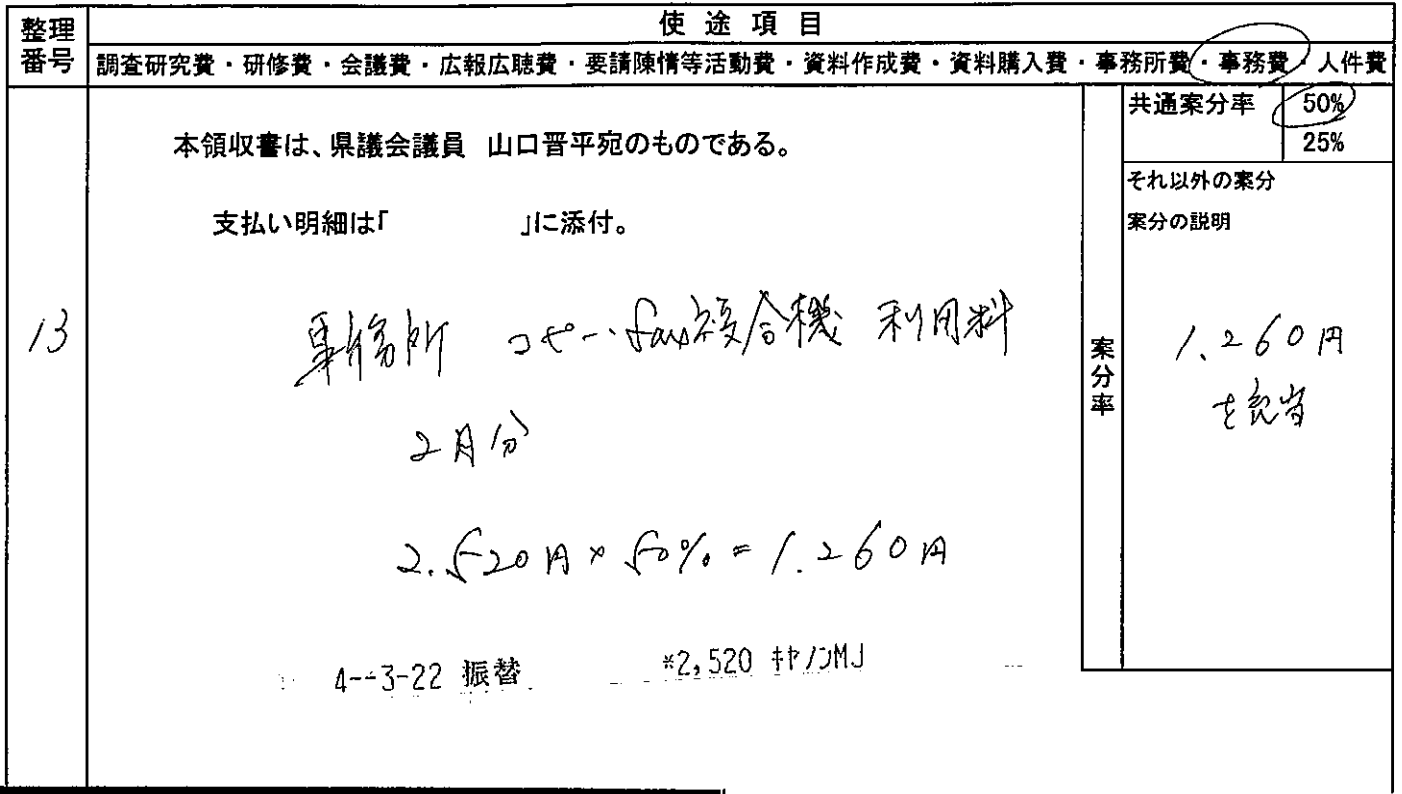 整理番号
使途項目
調査研究費・研修費・会議費・広報広聴費・要請陳情等活動費・資料作成費・資料購入費・事務所費・事務費・人件費
13
本領収書は、県議会議員 山口晋平宛のものである。
支払い明細は「 」に添付。
事務所 コピー・fax複合機 利用料
2月分
2.520円×50%=1.260円
4--3-22 振替 *2,520 キヤノンMJ
案分率
共通案分率 50%
25%
それ以外の案分
案分の説明
1.260円
を充当